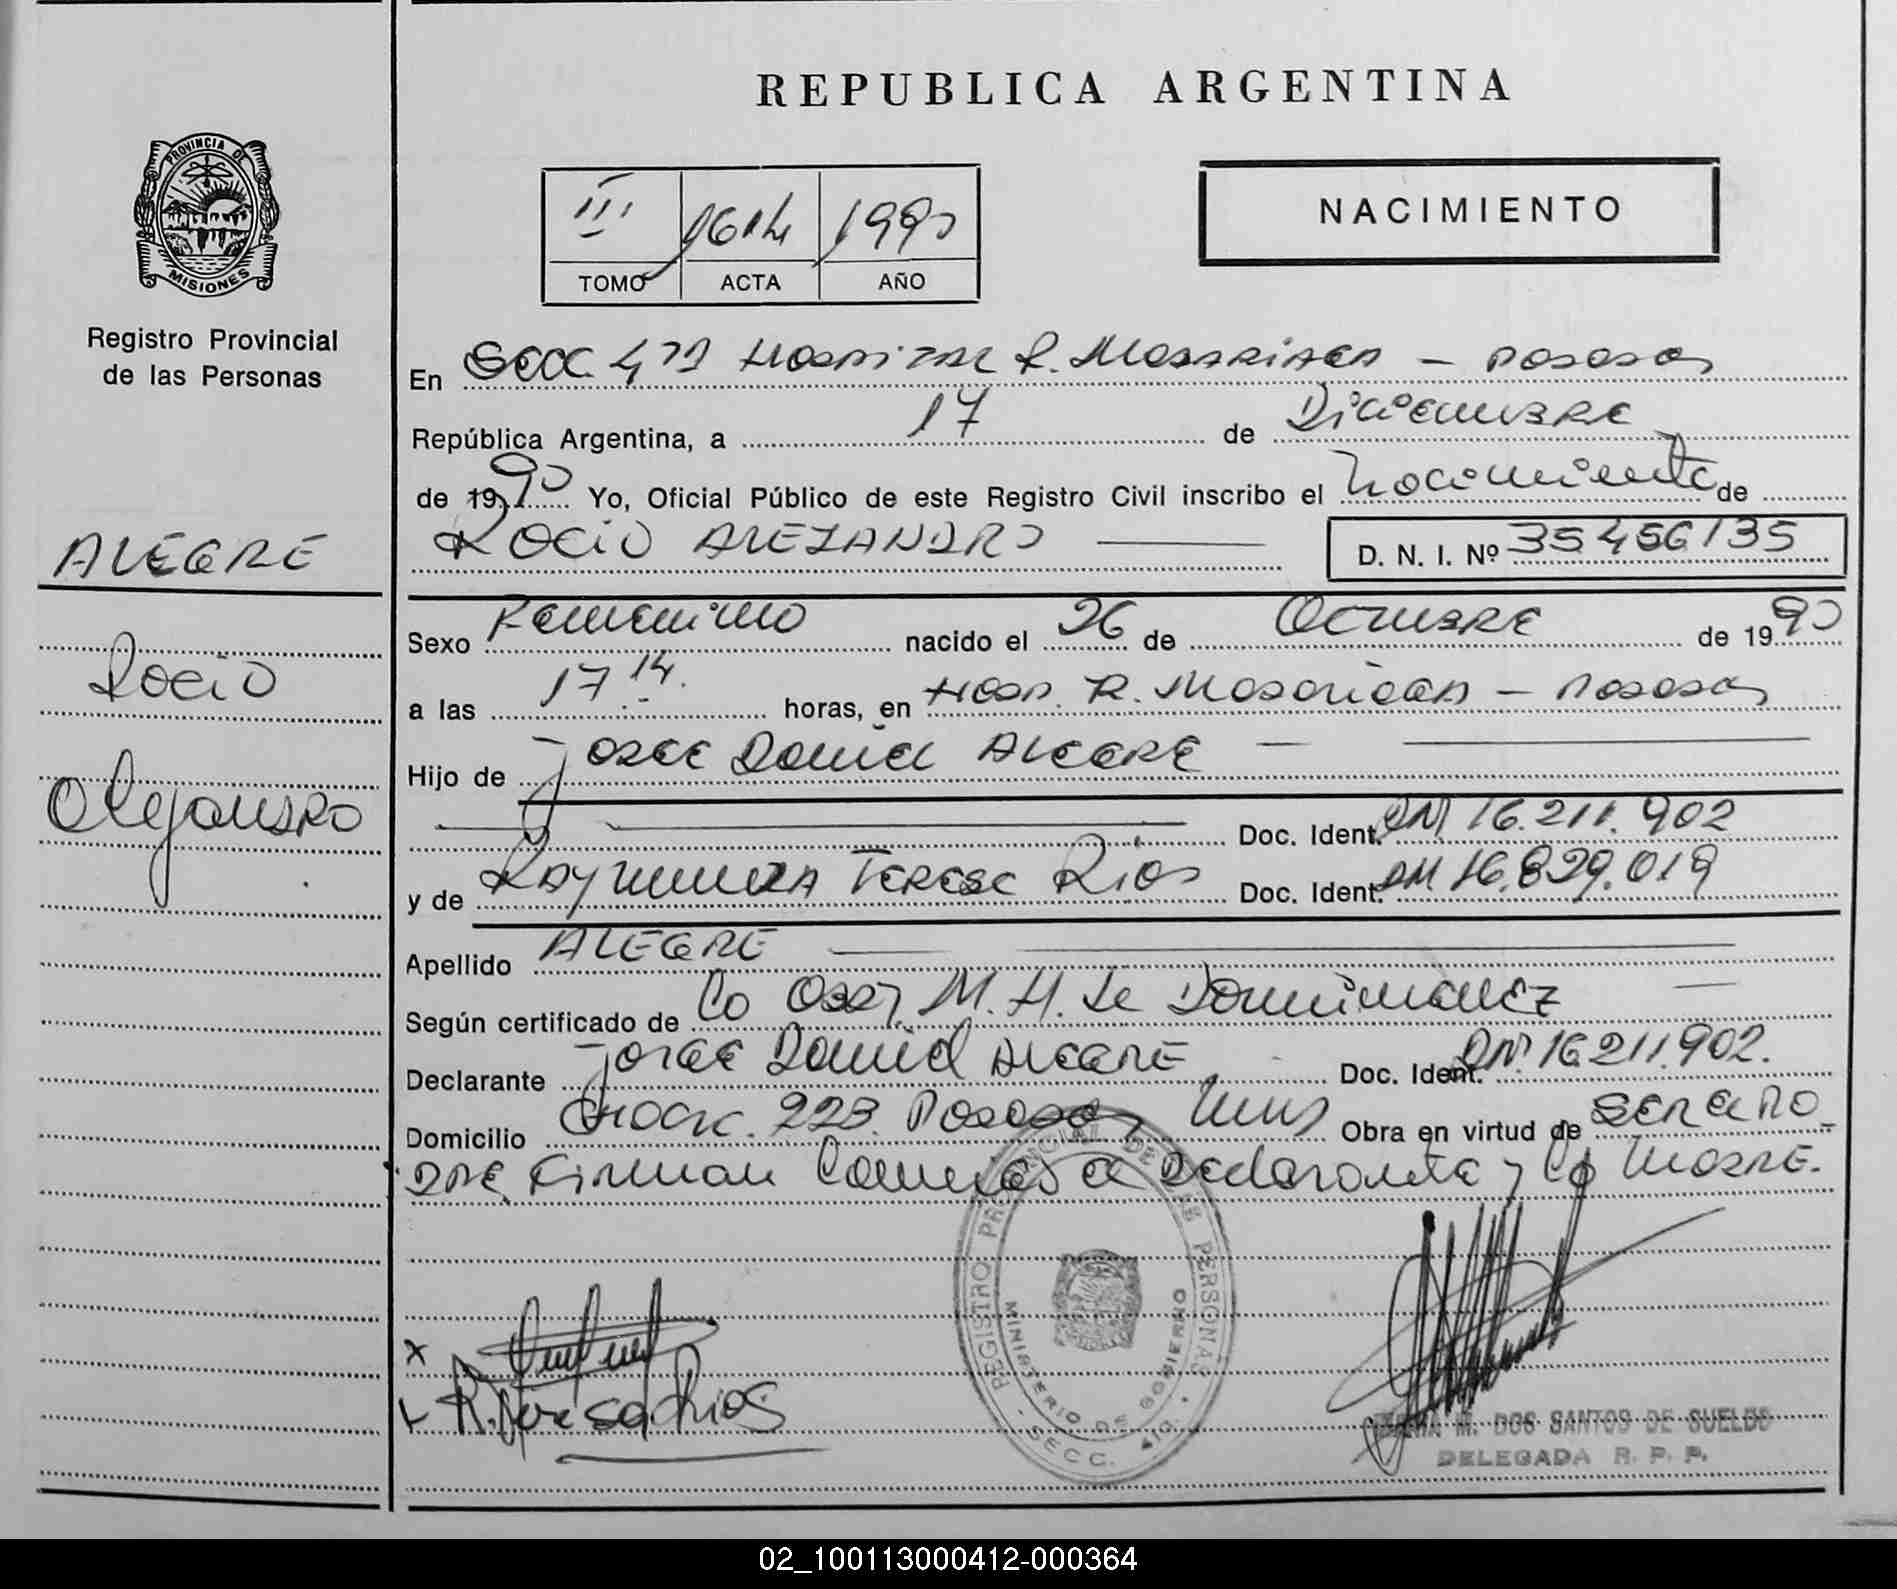 REPUBLICA ARGENTINA
PROVINCIA DE
MISIONES
Registro Provincial
de las Personas
III 1614 1990
TOMO ACTA AÑO
NACIMIENTO
En Secc. 4 Hospital R. Madariaga - Posadas
República Argentina, a 17 de Diciembre
de 1990 Yo, Oficial Público de este Registro Civil inscribo el Nacimiento de
Rocio ALEJANDRO D. N. I. Nº 35456135
ALEGRE
Rocio
Alejandro
Sexo Femenino nacido el 26 de Octubre de 1990
a las 17 14. horas, en Hosp. R. Madariaga - Posadas
Hijo de Jorge Daniel ALEGRE
Doc. Ident. DNI 16.211.902
y de Raymunda Teresa Rios Doc. Ident. DNI 16.829.019
Apellido ALEGRE
Según certificado de La Obst. M. H. de Dominguez
Declarante Jorge Daniel ALEGRE Doc. Ident. DNI 16211.902.
Domicilio 223. Posadas Mnes Obra en virtud de ser el PA
DRE Firman el Declarante y la MADRE.
REGISTRO PROVINCIAL DE LAS PERSONAS
MINISTERIO DE GOBIERNO
SECC.
R. Teresa Rios
M. DOS SANTOS DE SUELDO
DELEGADA R. P. P.
02_100113000412-000364